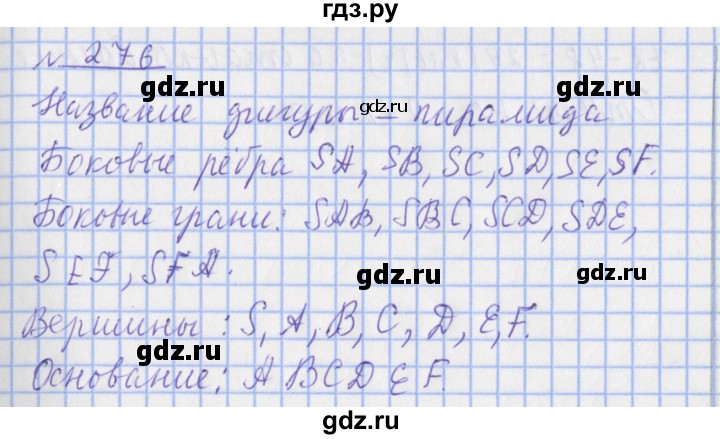 гдз.ру
№ 276
gdz.ru gdz.ru
Название фигуры – пирамида
gdz.ru
Боковые рёбра SA, SB, SC, SD, SE, SF.
gdz.ru gdz.ru
Боковые грани: SAB, SBC, SCD, SDE,
SEF, SFA.
gdz.ru gdz.ru
Вершины: S, A, B, C, D, E, F.
gdz.ru gdz.ru
Основание: ABCDEF.
gdz.ru